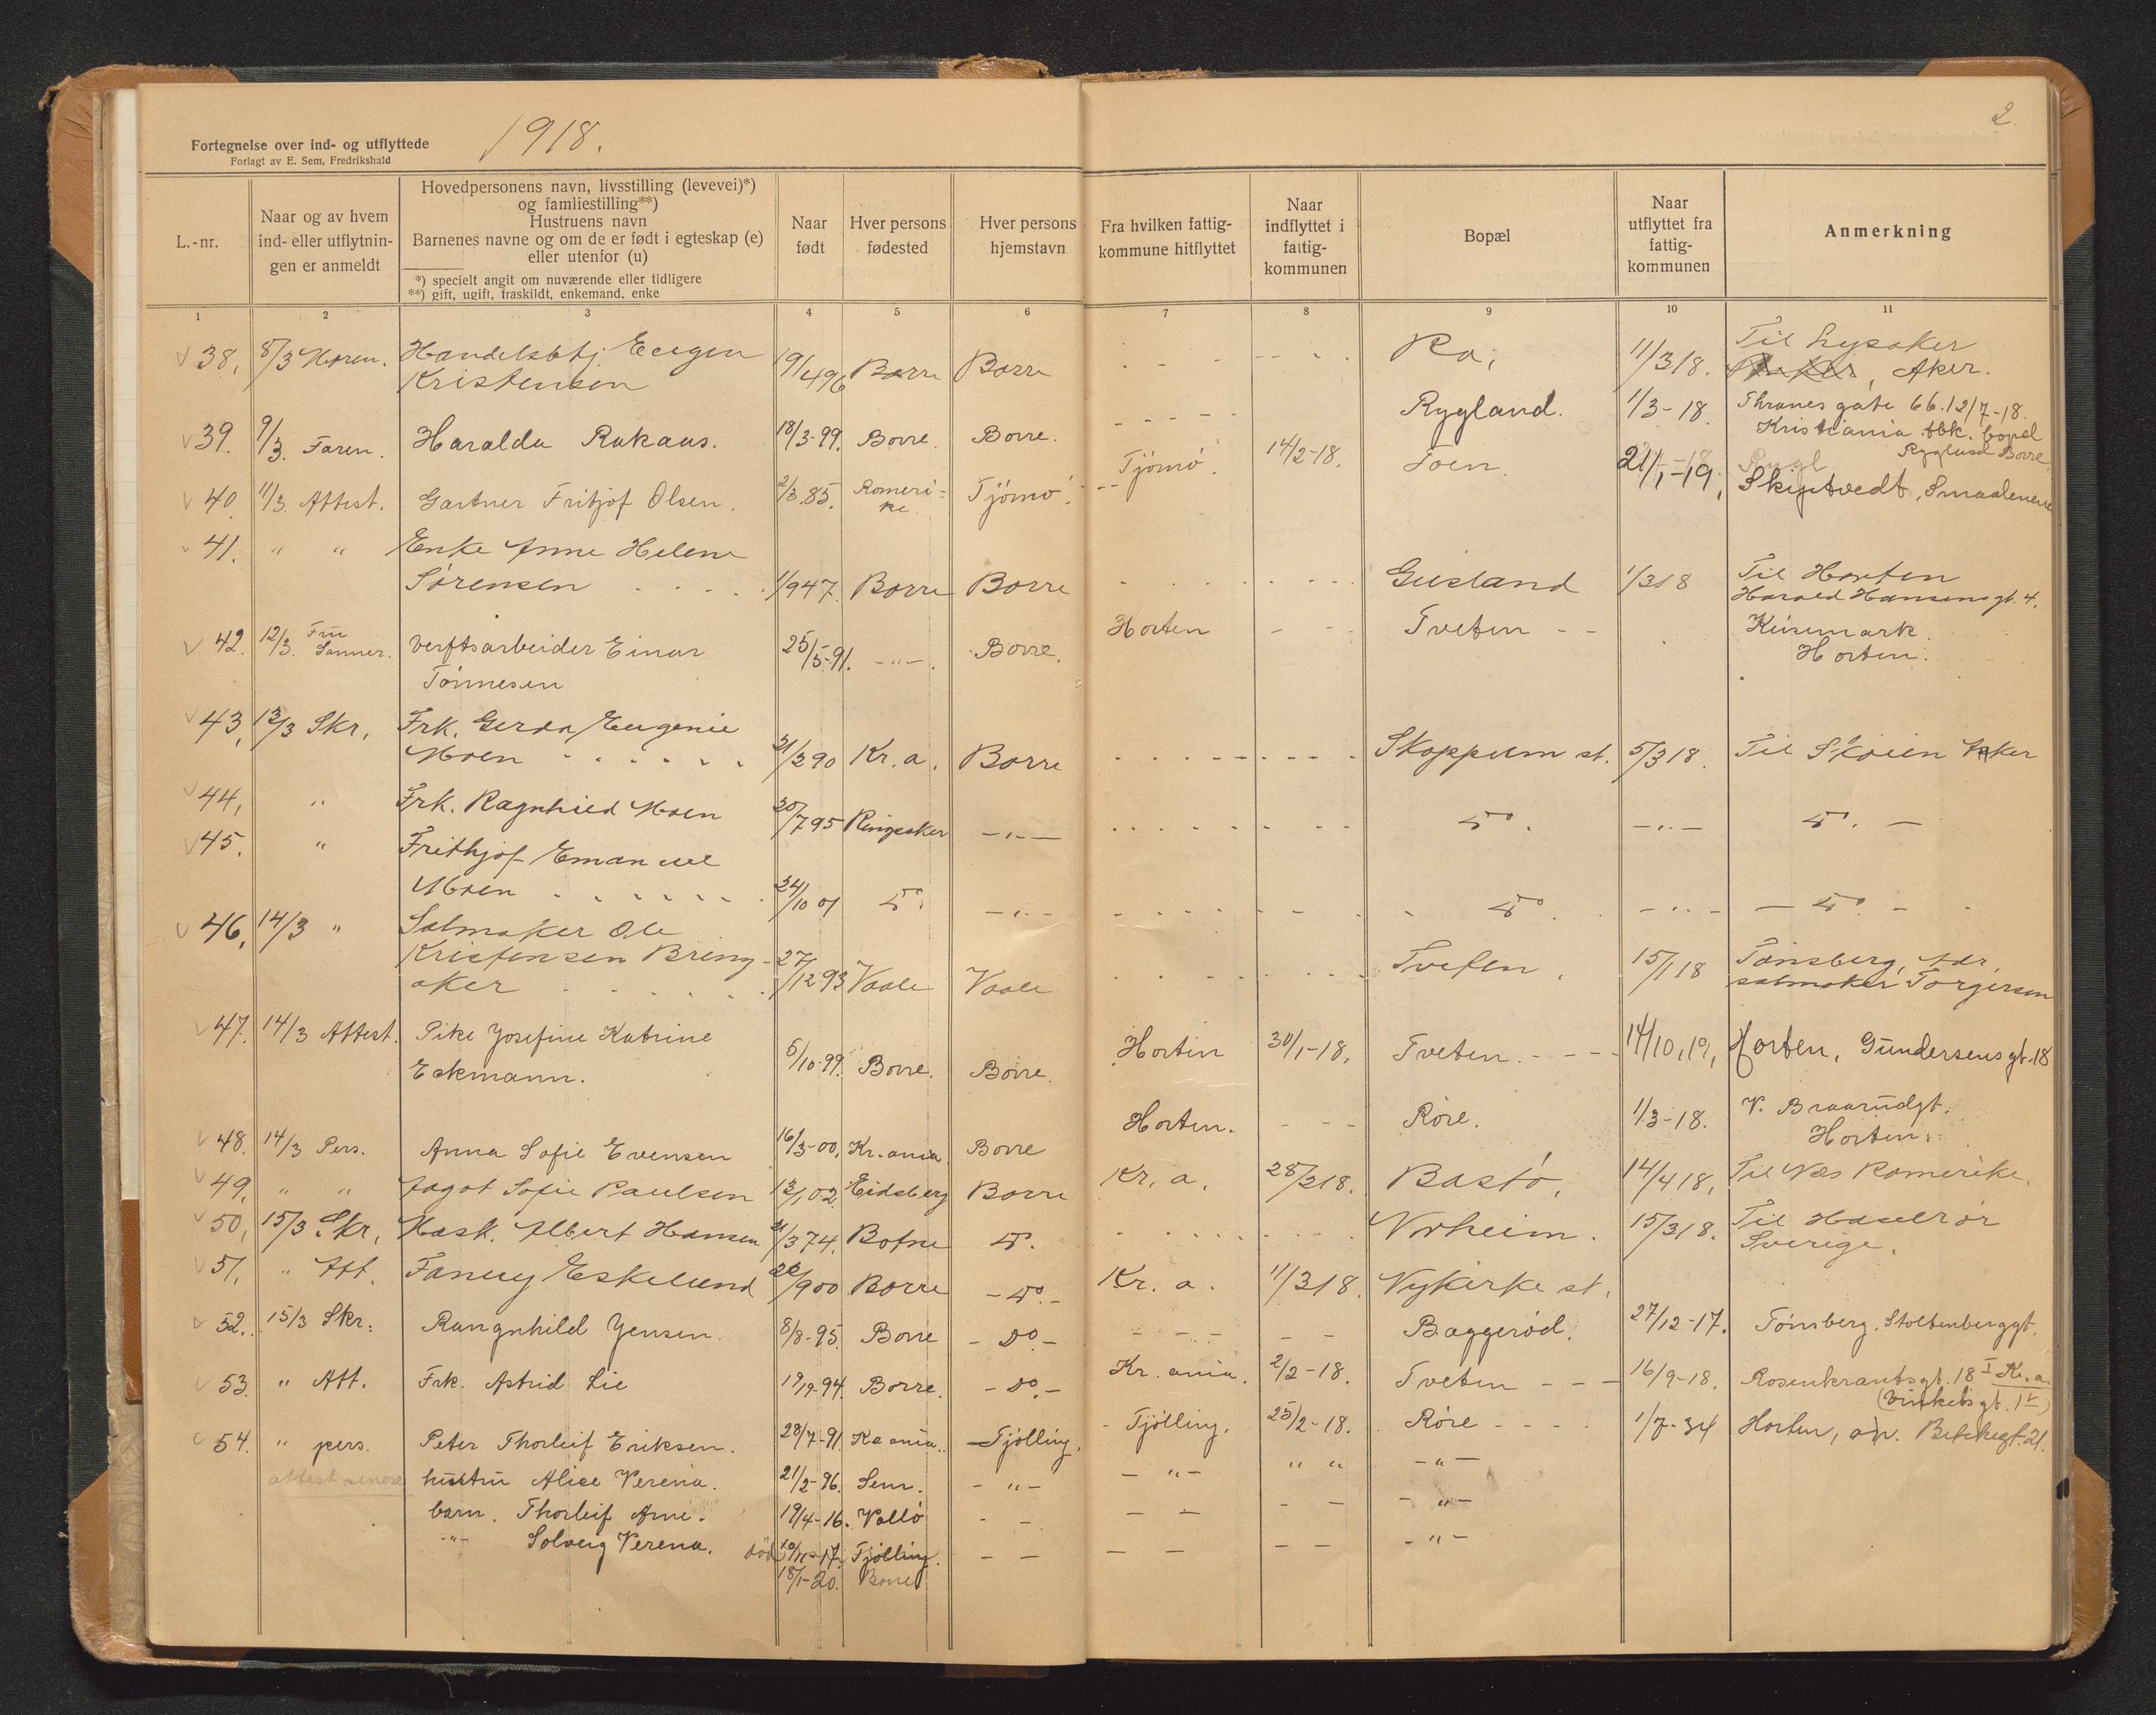 2
1918.
Fortegnelse over ind- og utflyttede
Forlagt av E. Sem, Fredrikshald
L.-nr.
Naar og av hvem ind- eller utflytnin- gen er anmeldt
Hovedpersonens navn, livsstilling (levevei)*)
og famliestilling**)
Hustruens navn
Barnenes navne og om de er født i egteskap (e)
eller utenfor (u)
*) specielt angit om nuværende eller tidligere
**) gift, ugift, fraskildt, enkemand, enke
Naar født
Hver persons fødested
Hver persons hjemstavn
Fra hvilken fattig- kommune hitflyttet
Naar indflyttet i fattig- kommunen
Bopæl
Naar utflyttet fra fattig- kommunen
Anmerkning
1 2 3 4 5 6 7 8 9 10 11
38, 8/3 Moren. Handelsbtj. Eugen 19/4 96 Borre Borre Ra, 11/3 18. Til Lysaker
Kristensen Aker.
39. 9/3. Faren. Haralda Rakaas. 18/3-99. Borre. Borre. Rygland. 1/3-18. Thranes gate 66. 12/7-18.
Kristiania tbk. bopel
Rygland Borre
40. 11/3. Attest. Gartner Fritjof Olsen. 2/3.85. Romeri- Tjømø. Tjømø. 14/2-18. Toen. 21/1-19. Skiptvedt, Smaalenene
ke
41. " " Enke Anne Helene
Sørensen 1/9 47. Borre Borre Gusland 1/3 18 Til Horten
Harald Hansens gt. 4.
42. 12/3. Fru Sanner. Verftsarbeider Einar 25/5-91. -"-. Borre. Horten Tveten Keisemark.
Tønnesen Horten.
43, 13/3 Skr. Frk. Gerda Eugenie
Moen 31/3 90 Kr.a. Borre Skoppum st. 5/3 18. Til Skøien Aker
44, " Frk. Ragnhild Moen 30/7 95 Ringsaker -"- do. -"- do. -
45. " Frithjof Emanuel
Moen 24/10 01 do -"- do. -"- - do -
46, 14/3 " Salmaker Ole
Kristensen Bring- 27/12 93 Vaale Vaale Tveten. 15/1 18 Tønsberg, Adr.
aker salmaker Torgersen
47. 14/3 Attest. Pike Josefine Katrine 5/10-99. Borre. Borre. Horten 30/1-18. Tveten. 14/10.19, Horten, Gundersens gt. 18
Eckmann.
48. 14/3 Pers. Anna Sofie Evensen 16/3-00. Kr.ania Borre Horten. Røre. 1/3-18. V. Braarudgt.
Horten.
49. " " Aagot Sofie Paulsen 13/1 02. Eidsberg Borre Kr.a. 28/3 18. Bastø. 14/4 18, Til Næs Romerike.
50, 15/3 Skr, Mask. Albert Hansen 31/3 74. Botne do. 15/3 18. Til
Sverige.
51, " Att. Fanny Eskelund 26/9 00 Borre - do. - Kr.a. 11/3 18. Nykirke st.
52. 15/3 Skr: Rangnhild Jensen. 8/8-95. Borre - Do. - Baggerød. 27/12-17. Tønsberg. Stoltenberggt.
53. " Att. Frk. Astrid Lie 19/12-94. Borre. - Do. - Kr.ania. 2/2-18. Tveten 16/9-18. Rosenkrantsgt. 18 I Kr.a.
54. " pers. Peter Thorleif Eriksen. 28/7-91. Kr.ania. Tjølling. Tjølling. 25/2-18. Røre 1/7-34 Horten,
attest senere hustru Alice Verena. 21/2-96. Sem. - " - - " - " " - " -
barn. Thorleif Arne. 19/4-16. Vallø - " -
-"- Solveig Verena. død 10/11-17. Tjølling. - " -
18/1-20. Borre